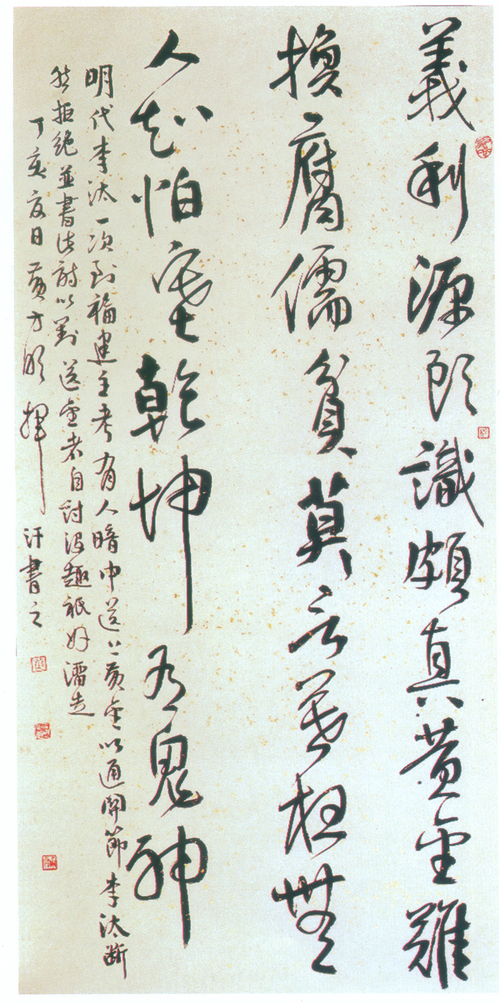 義利源頭識頗真黄金難
換腐儒貧莫言暮夜無
人知怕塞乾坤有鬼神
明代李汰一次到福建主考有人暗中送上黄金以通關節李汰斷
然拒絶並書此詩以對送金者自討没趣衹好溜走
丁亥夏日黄方揮汗書之